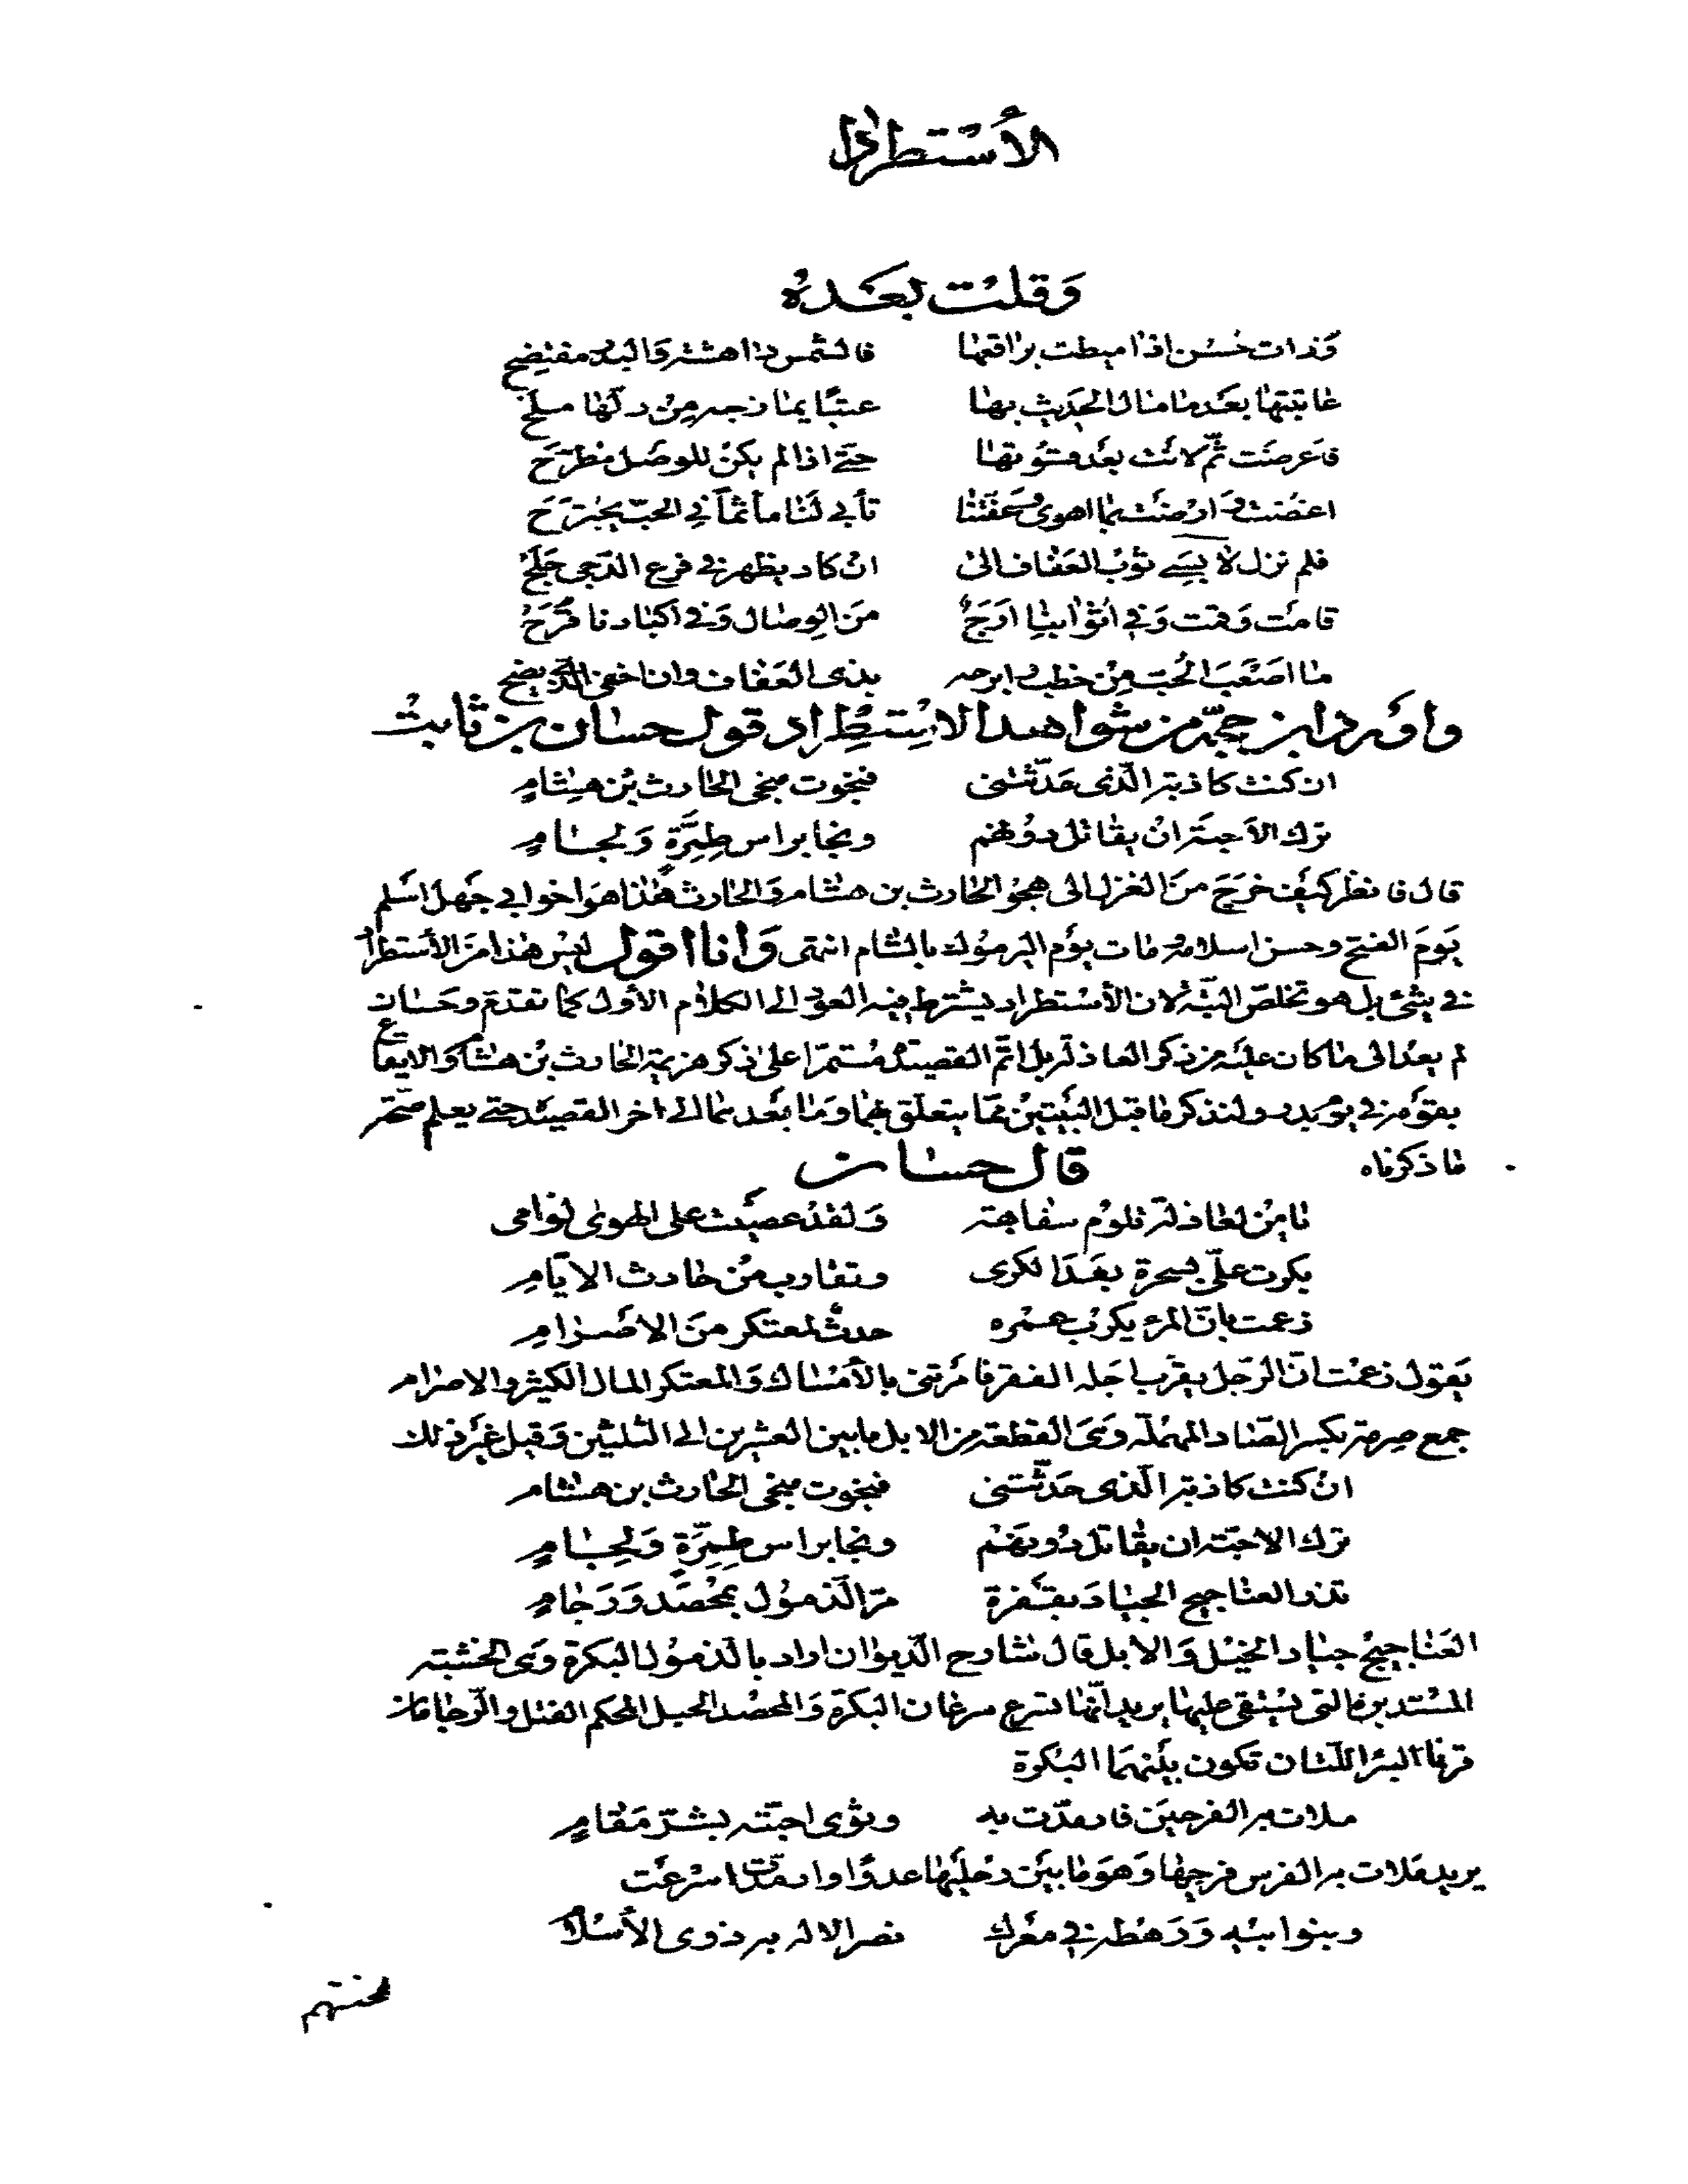 الأستطراد
وقلت بعده
وذات حسن اذا ميطت براقعها فالشمس داهشة والبدر مفتضح
عاتبتها بعد ما مال الحديث بها عتبًا يمازجه من دلها ملح
فاعرضت ثم لانت بعد قسوتها حتى اذا لم يكن للوصل مطرح
اغضت وارضت بما اهوى وعفتنا تأبى لنا مأثمًا في الحب يجترح
فلم نزل لابسي ثوب العفاف الى ان كاد يظهر في فرع الدجى جلح
قامت وقمت وفي اثوابنا ارج من الوصال وفي اكبادنا قرح
ما اصعب الحب من خطب وابرحه بذي العفاف وان اخفى الذي يضح
واورد ابن حجة من شواهد الاستطراد قول حسان بن ثابت
ان كنت كاذبة الذي حدثتني فنجوت منجى الحارث بن هشام
ترك الاحبة ان يقاتل دونهم ونجا براس طمرة ولجام
قال فانظر كيف خرج من الغزل الى هجو الحارث بن هشام والحارث هذا هو اخو ابي جهل اسلم
يوم الفتح وحسن اسلامه ومات يوم اليرموك بالشام انتهى وانا اقول ليس هذا من الأستطراد
في شئ بل هو تخلص البتة لان الأستطراد يشترط فيه العود الى الكلام الأول كما تقدم وحسان
لم يعد الى ما كان عليه من ذكر العاذلة بل اتم القصيدة مستمرا على ذكر هزيمة الحارث بن هشام والايقاع
بقومه في يوم بدر ولنذكر ما قبل البيتين مما يتعلق بهما وما بعدهما الى اخر القصيدة حتى يعلم صحة
ما ذكرناه
قال حسان
يا من لعاذلة تلوم سفاهة ولقد عصيت على الهوى لوامى
بكرت على بسحرة بعد الكرى وتقارب من حادث الايام
زعمت بان المرء يكرب عمره عدم لمعتكر من الاصرام
يقول زعمت ان الرجل يقرب اجله الفقر فامرتنى بالأمساك والمعتكر المال الكثير والاصرام
جمع صرمة بكسر الصاد المهملة وهى القطعة من الابل ما بين العشرين الى الثلثين وقيل غير ذلك
ان كنت كاذبة الذى حدثتنى فنجوت منجى الحارث بن هشام
ترك الاحبة ان يقاتل دونهم ونجا براس طمرة ولجام
تذر العناجيج الجياد بقفرة مر الذمول بمحصد ورجام
العناجيج جياد الخيل والابل قال شارح الديوان اراد بالذمول البكرة وهى الخشبة
المستديرة التى يستقى عليها يريد انها تسرع سرعان البكرة والمحصد الحبل المحكم الفتل والرجامان
قرنا البئر اللتان تكون بينهما البكرة
ملات به الفرجين فارمدت به وثوى احبته بشر مقام
يريد ملات به الفرس فرجيها وهو ما بين رجليها عدوًا وارمدت اسرعت
وبنوا بيه ورهطه في معرك نصر الاله به ذوى الأسلام